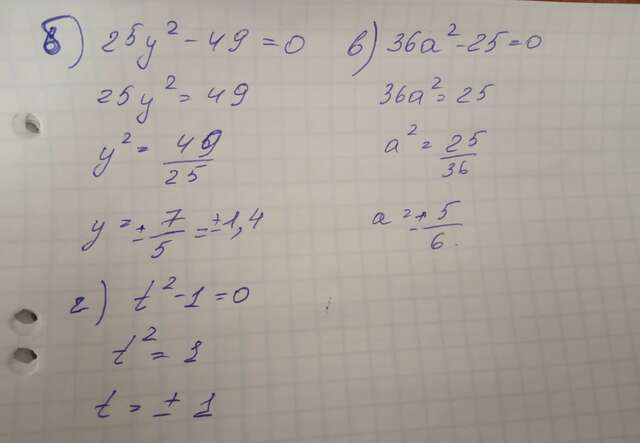 б) 25y² - 49 = 0
25y² = 49
y² = 49/25
y = ± 7/5 = ±1,4
в) 36a² - 25 = 0
36a² = 25
a² = 25/36
a = ± 5/6.
г) t² - 1 = 0
t² = 1
t = ± 1